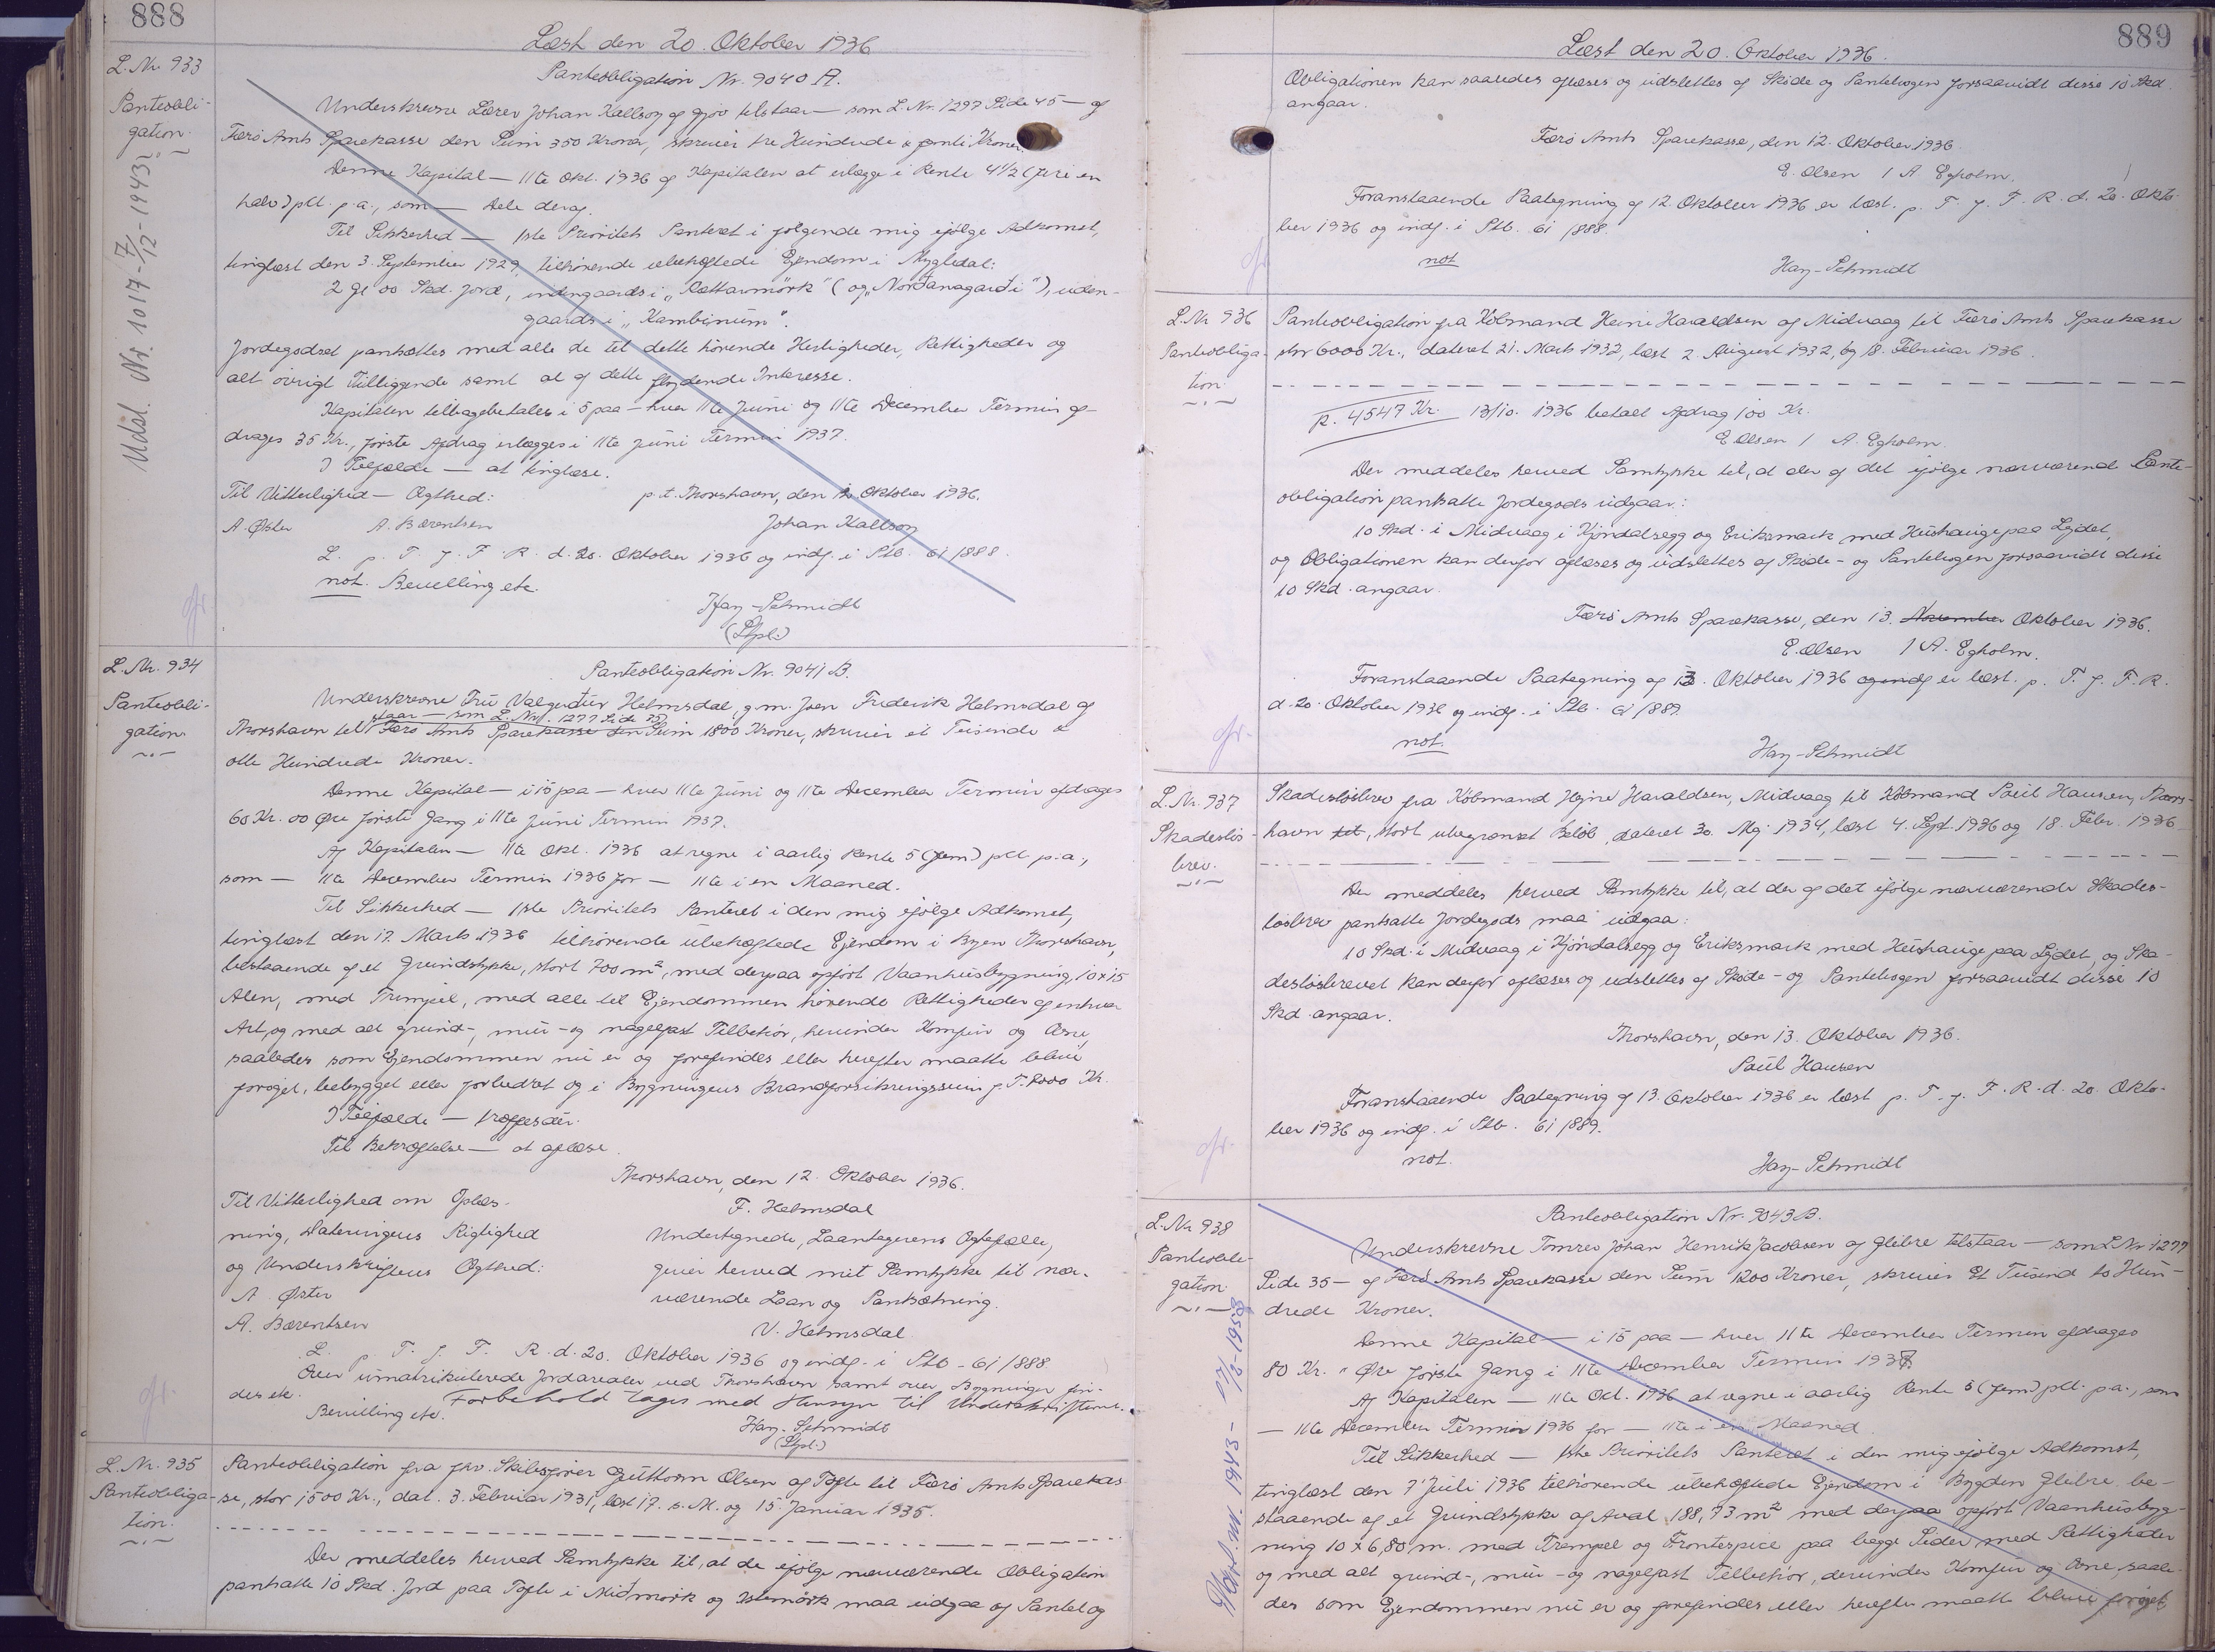 888
Læst den 20. Oktober 1936
L. Nr. 933
Panteobli-
gation.
Udsl. Nr. 1017 - 7/12 - 1943.
Panteobligation Nr. 9040 A.
Underskrevne Lærer Johan Kallsoy af Gjov tilstaar — som L. Nr. 1297 Side 45 — af
Færø Amts Sparekasse den Sum 350 Kroner, skriver tre Hundrede & femti Kroner.
Denne Kapital — 11te Okt. 1936 af Kapitalen at erlægge i Rente 4 1/2 (fire en
halv) pCt. p.a., som — Dele deraf.
Til Sikkerhed — 1ste Prioritets Panteret i følgende mig ifølge Adkomst,
tinglæst den 3. September 1929, tilhørende ubehæftede Ejendom i Mygledal:
2 Gl 00 Skd. Jord, indengaards i „Rættarmørk“ (og „Norðanagarði“), uden-
gaards i „Kambinum“.
Jordegodset pantsættes med alle de til dette hørende Herligheder, Rettigheder og
alt øvrigt Tilliggende samt al af dette flydende Interesse.
Kapitalen tilbagebetales i 5 paa — hver 11te Juni og 11te December Termin af-
drages 35 Kr., første Afdrag erlægges i 11te Juni Termin 1937.
I Tilfælde — at tinglæse.
Til Vitterlighed — Ægthed: p.t. Thorshavn, den 12. Oktober 1936.
A. Øster A. Bærentsen Johan Kallsoy
L. p. T. f. F. R. d. 20. Oktober 1936 og indf. i Ptb. 61/888.
not. Bevilling etc.
Hay-Schmidt
L. Nr. 934
Panteobli-
gation
Panteobligation Nr. 9041 B.
Underskrevne Fru Valgerður Helmsdal, g.m. Joen Frederik Helmsdal af
staar — som L. Nr. 1277 Side 35
Thorshavn til Færø Amts Sparekasse den Sum 1800 Kroner, skriver et Tusende &
otte Hundrede Kroner.
Denne Kapital — i 15 paa — hver 11te Juni og 11te December Termin afdrages
60 Kr. 00 Øre første Gang i 11te Juni Termin 1937.
Af Kapitalen — 11te Okt. 1936 at regne i aarlig Rente 5 (fem) pCt p.a.,
som — 11te December Termin 1936 for — 11te i en Maaned.
Til Sikkerhed — 1ste Prioritets Panteret i den mig ifølge Adkomst,
tinglæst den 17. Marts 1936 tilhørende ubehæftede Ejendom i Byen Thorshavn,
bestaaende af et Grundstykke, stort 700 m², med derpaa opført Vaanhusbygning, 10 x 15
Alen, med Trempel, med alle til Ejendommen hørende Rettigheder af enhver
Art, og med alt grund-, mur- og nagelfast Tilbehør, herunder Komfur og Ovne,
saaledes som Ejendommen nu er og forefindes eller herefter maatte blive
forøget, bebygget eller forbedret og i Bygningens Brandforsikringssum f. T. 8000 Kr.
I Tilfælde — træffes der.
Til Bekræftelse — at aflæse.
Thorshavn, den 12. Oktober 1936.
Til Vitterlighed om Oplæs- F. Helmsdal
ning, Dateringens Rigtighed Undertegnede, Laantagerens Ægtefælle,
og Underskriftens Ægthed: giver herved mit Samtykke til nær-
A. Øster værende Laan og Pantsætning.
A. Bærentsen V. Helmsdal
L. p. T. f. F. R. d. 20. Oktober 1936 og indf. i Ptb. 61/888
Over umatrikulerede Jordarealer ved Thorshavn samt over Bygninger fin-
des etc. Forbehold tages med Hensyn til Underskriften.
Bevilling etc.
Hay-Schmidt
L. Nr. 935
Panteobliga-
tion.
Panteobligation fra fhv. Skibsfører Gutthorm Olsen af Tofte til Færø Amts Sparekas-
se, stor 1500 Kr., dat. 3. Februar 1931, læst 17. s. M. og 15. Januar 1935.
Der meddeles herved Samtykke til, at de ifølge nærværende Obligation
pantsatte 10 Skd. Jord paa Tofte i Miðmørk og Istumørk maa udgaa af Pantet og
889
Læst den 20. Oktober 1936.
Obligationen kan saaledes aflæses og udslettes af Skøde og Pantebogen forsaavidt disse 10 Skd.
angaar.
Færø Amts Sparekasse, den 12. Oktober 1936.
E. Olsen / A. Egholm.
Foranstaaende Paategning af 12. Oktober 1936 er læst. p. T. f. F. R. d. 20. Okto-
ber 1936 og indf. i Ptb. 61/888.
not Hay-Schmidt
L. Nr 936
Panteobliga-
tion.
Panteobligation fra Købmand Heine Haraldsen af Midvaag til Færø Amts Sparekasse
stor 6000 Kr., dateret 21. Marts 1932, læst 2. August 1932, og 18. Februar 1936.
R. 4547 Kr. 13/10. 1936 betalt Afdrag 100 Kr.
E. Olsen / A. Egholm.
Der meddeles herved Samtykke til, at der af det ifølge nærværende Pante-
obligation pantsatte Jordegods udgaar:
10 Skd. i Midvaag i Kjóndalsegg og Eriksmark med Hushauge paa Lydet,
og Obligationen kan derfor aflæses og udslettes af Skøde- og Pantebogen forsaavidt disse
10 Skd. angaar.
Færø Amts Sparekasse, den 13. November Oktober 1936.
E. Olsen / A. Egholm.
Foranstaaende Paategning af 13. Oktober 1936 og indf er læst. p. T. f. F. R.
d. 20. Oktober 1936 og indf. i Ptb. 61/889.
not. Hay-Schmidt
L. Nr. 937
Skadesløs-
brev.
Skadesløsbrev fra Købmand Hejne Haraldsen, Midvaag til Købmand Poul Hansen, Thors-
havn til, stort ubegrænset Beløb, dateret 30. Maj 1934, læst 4. Sept. 1936 og 18. Febr. 1936
Der meddeles herved Samtykke til, at der af det ifølge nærværende Skades-
løsbrev pantsatte Jordegods maa udgaa:
10 Skd. i Midvaag i Kjóndalsegg og Eriksmark med Hushauge paa Lydet, og Ska-
desløsbrevet kan derfor aflæses og udslettes af Skøde- og Pantebogen forsaavidt disse 10
Skd. angaar.
Thorshavn, den 13. Oktober 1936.
Poul Hansen
Foranstaaende Paategning af 13. Oktober 1936 er læst p. T. f. F. R. d. 20. Okto-
ber 1936 og indf. i Ptb. 61/889.
not. Hay-Schmidt
L. Nr 938
Panteobli-
gation
Panteobligation Nr. 9043 B.
Underskrevne Tømrer Johan Henrik Jacobsen af Glibre tilstaar — som L Nr 1277
Side 35 — af Færø Amts Sparekasse den Sum 1200 Kroner, skriver Et Tusind to Hun-
drede Kroner.
Denne Kapital — i 15 paa — hver 11te December Termin afdrages
80 Kr. " Øre første Gang i 11te December Termin 1937.
Af Kapitalen — 11te Oct. 1936 at regne i aarlig Rente 5 (fem) pCt. p.a., som
— 11te December Termin 1936 for — 11te i en Maaned
Til Sikkerhed — 1ste Prioritets Panteret i den mig ifølge Adkomst,
tinglæst den 7 Juli 1936 tilhørende ubehæftede Ejendom i Bygden Glibre be-
staaende af et Grundstykke af Areal 188,73 m² med derpaa opført Vaanhusbyg-
ning 10 x 6,80 m. med Trempel og Frontespice paa begge Sider med Rettigheder
og med alt grund-, mur- og nagelfast Tilbehør, derunder Komfur og Ovne saale-
des som Ejendommen nu er og forefindes eller herefter maatte blive forøget